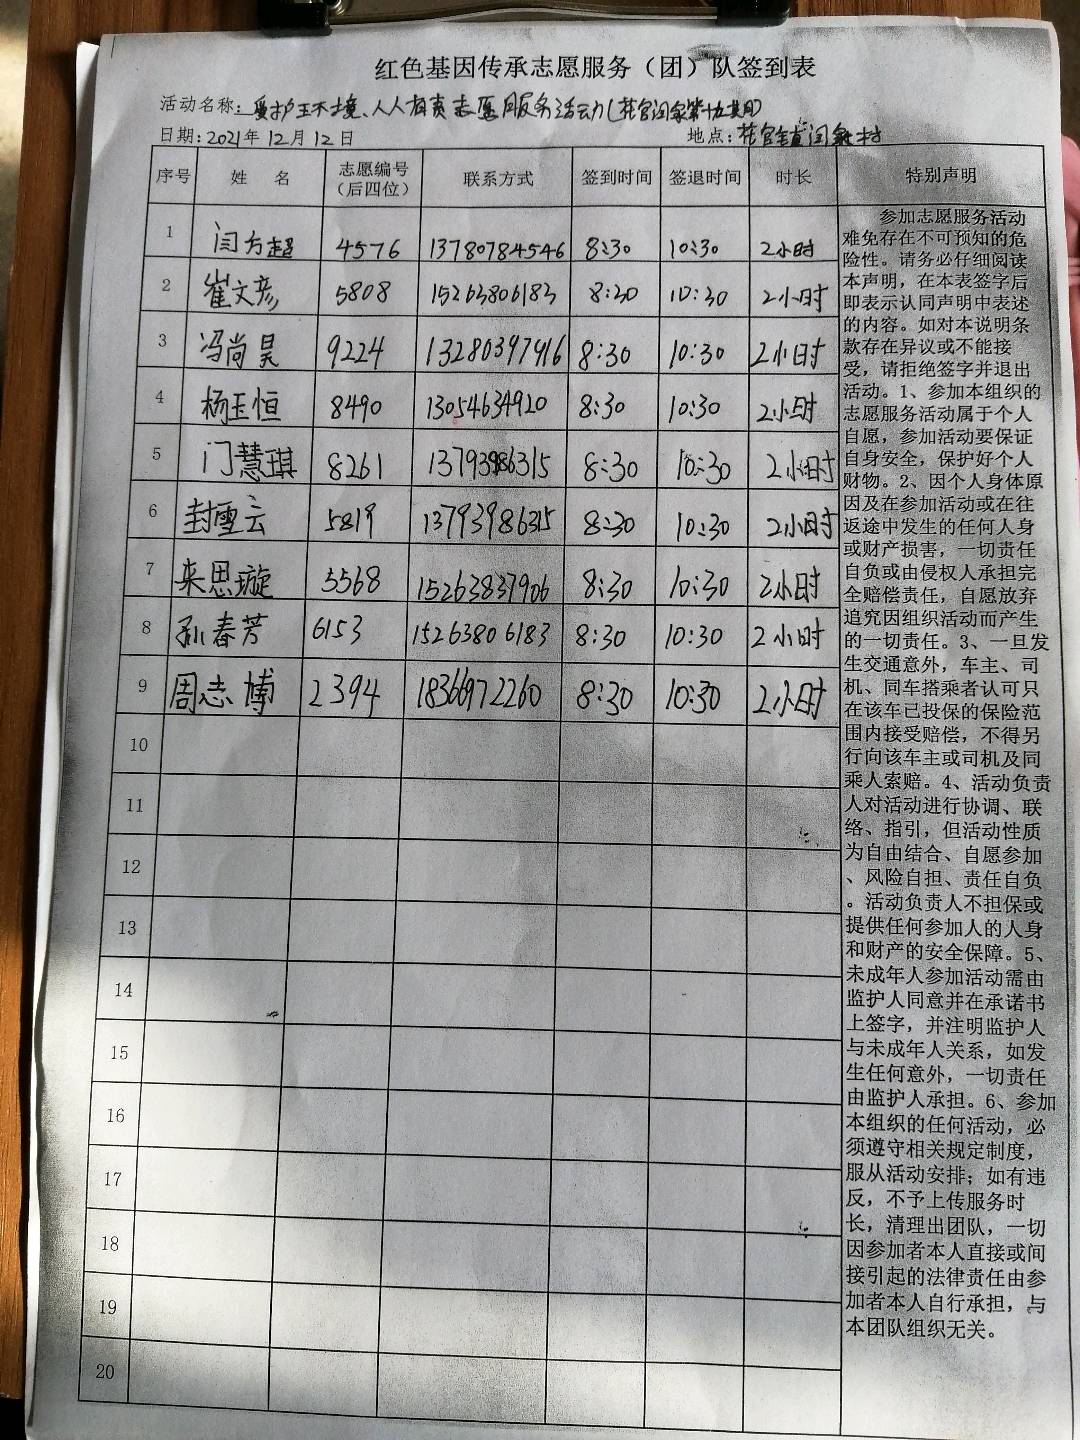 红色基因传承志愿服务（团）队签到表
活动名称：爱护环境、人人有责志愿服务活动（花官闫家第十五期）
日期：2021年12月12日 地点：花官镇闫家村
序号 姓名 志愿编号（后四位） 联系方式 签到时间 签退时间 时长 特别声明
1 闫方超 4576 13780784546 8:30 10:30 2小时
2 崔文彦 5808 15263806183 8:30 10:30 2小时
3 冯尚昊 9224 13280397916 8:30 10:30 2小时
4 杨玉恒 8490 13054634920 8:30 10:30 2小时
5 门慧琪 8261 13793986315 8:30 10:30 2小时
6 封雪云 5819 13793986315 8:30 10:30 2小时
7 来思璇 5568 15263837906 8:30 10:30 2小时
8 孙春芳 6153 15263806183 8:30 10:30 2小时
9 周志博 2394 18366972260 8:30 10:30 2小时
10
11
12
13
14
15
16
17
18
19
20
参加志愿服务活动
难免存在不可预知的危
险性。请务必仔细阅读
本声明，在本表签字后
即表示认同声明中表述
的内容。如对本说明条
款存在异议或不能接
受，请拒绝签字并退出
活动。1、参加本组织的
志愿服务活动属于个人
自愿，参加活动要保证
自身安全，保护好个人
财物。2、因个人身体原
因及在参加活动或在往
返途中发生的任何人身
或财产损害，一切责任
自负或由侵权人承担完
全赔偿责任，自愿放弃
追究因组织活动而产生
的一切责任。3、一旦发
生交通意外，车主、司
机、同车搭乘者认可只
在该车已投保的保险范
围内接受赔偿，不得另
行向该车主或司机及同
乘人索赔。4、活动负责
人对活动进行协调、联
络、指引，但活动性质
为自由结合、自愿参加
、风险自担、责任自负
。活动负责人不担保或
提供任何参加人的人身
和财产的安全保障。5、
未成年人参加活动需由
监护人同意并在承诺书
上签字，并注明监护人
与未成年人关系，如发
生任何意外，一切责任
由监护人承担。6、参加
本组织的任何活动，必
须遵守相关规定制度，
服从活动安排；如有违
反，不予上传服务时
长，清理出团队，一切
因参加者本人直接或间
接引起的法律责任由参
加者本人自行承担，与
本团队组织无关。